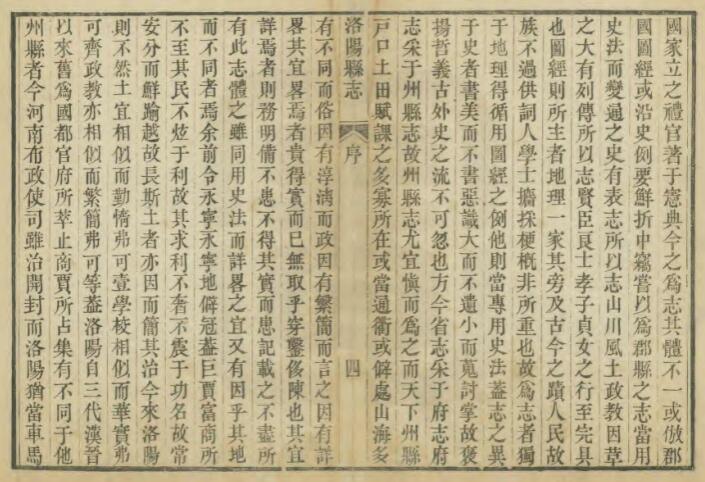 國家立之禮官著于憲典今之爲志其體不一或倣郡
國圖經或沿史例要鮮折中竊嘗以爲郡縣之志當用
史法而變通之史有表志所以志山川風土政教因草
之大有列傳所以志賢臣良士孝子貞女之行至完具
也圖經則所主者地理一家其旁及古今之蹟人民故
族不過供詞人學士攟採梗槪非所重也故爲志者獨
于地理得循用圖經之例他則當專用史法葢志之異
于史者書美而不書惡識大而不遺小而蒐討掌故褒
揚哲義古外史之流不可忽也方今省志采于府志府
志采于州縣志故州縣志尤宜愼而爲之而天下州縣
戸口土田賦課之多寡所在或當通衢或僻處山海多
洛陽縣志 序 四
有不同而俗因有淳漓而政因有繁簡而言之因有詳
畧其宜畧焉者貴得實而已無取乎穿鑿侈陳也其宜
詳焉者則務明備不患不得其實而患記載之不盡所
有此志體之雖同用史法而詳畧之宜又有因乎其地
而不同者焉余前令永寧永寧地僻冠葢巨賈富商所
不至其民不炫于利故其求利不奢不震于功名故常
安分而鮮踰越故長斯土者亦因而簡其治今來洛陽
則不然土宜相似而勤惰弗可壹學校相似而華實弗
可齊政教亦相似而繁簡弗可等葢洛陽自三代漢晉
以來舊爲國都官府所萃止商賈所占集有不同于他
州縣者今河南布政使司雖治開封而洛陽猶當車馬